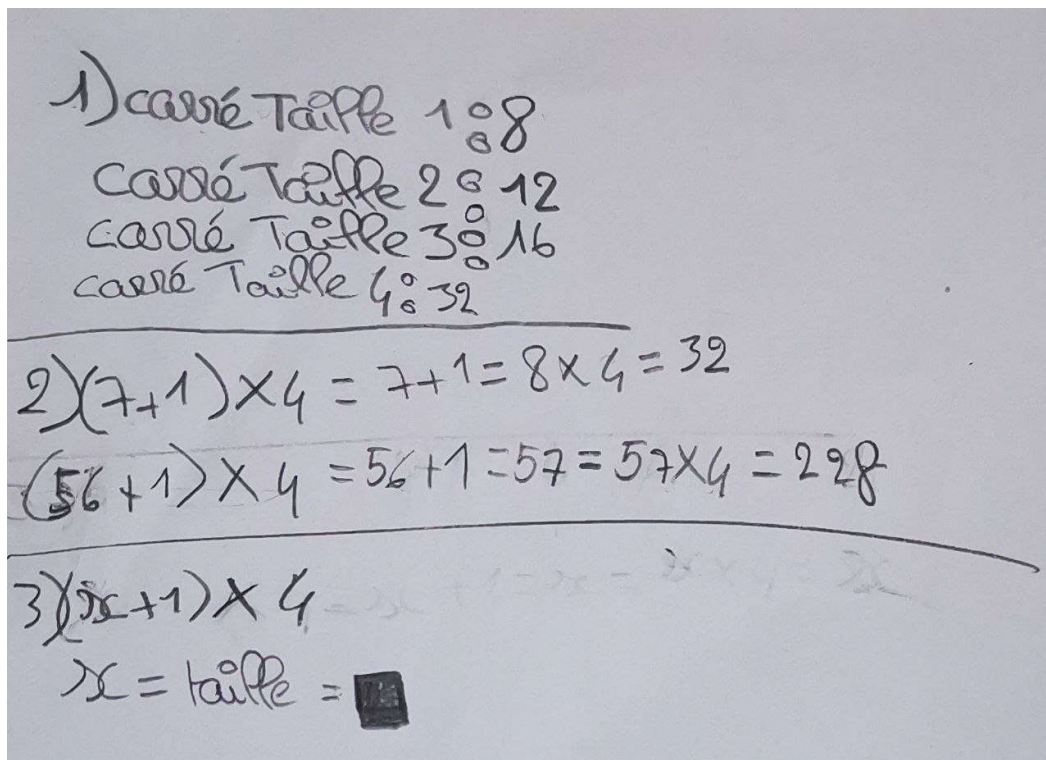 1) carré Taille 1 : 8
carré Taille 2 : 12
carré Taille 3 : 16
carré Taille 4 : 32
2) (7+1) × 4 = 7+1 = 8 × 4 = 32
(56+1) × 4 = 56+1 = 57 = 57×4 = 228
3) (x+1) × 4
x = taille = ■